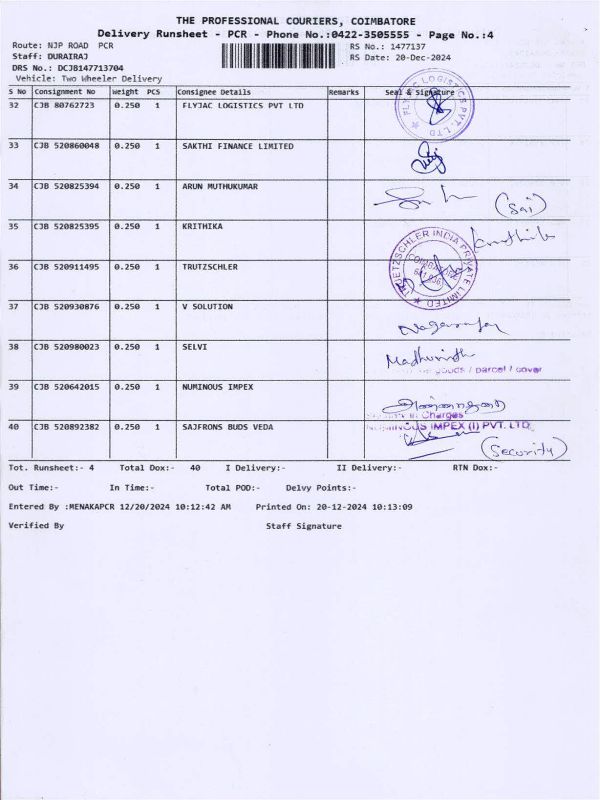 THE PROFESSIONAL COURIERS, COIMBATORE
Delivery Runsheet - PCR - Phone No.:0422-3505555 - Page No.:4
Route: NJP ROAD PCR RS No.: 1477137
Staff: DURAIRAJ RS Date: 20-Dec-2024
DRS No.: DCJB147713704
Vehicle: Two Wheeler Delivery
S No Consignment No Weight PCS Consignee Details Remarks Seal & Signature
32 CJB 80762723 0.250 1 FLYJAC LOGISTICS PVT LTD
FLYJAC LOGISTICS PVT. LTD.
33 CJB 520860048 0.250 1 SAKTHI FINANCE LIMITED
34 CJB 520825394 0.250 1 ARUN MUTHUKUMAR
(Sai)
35 CJB 520825395 0.250 1 KRITHIKA
36 CJB 520911495 0.250 1 TRUTZSCHLER
TRUETZSCHLER INDIA PRIVATE LIMITED
COIMBATORE
37 CJB 520930876 0.250 1 V SOLUTION
38 CJB 520980023 0.250 1 SELVI
goods / parcel / cover
39 CJB 520642015 0.250 1 NUMINOUS IMPEX
in Charges
40 CJB 520892382 0.250 1 SAJFRONS BUDS VEDA
NUMINOUS IMPEX (I) PVT. LTD.
(Security)
Tot. Runsheet:- 4 Total Dox:- 40 I Delivery:- II Delivery:- RTN Dox:-
Out Time:- In Time:- Total POD:- Delvy Points:-
Entered By :MENAKAPCR 12/20/2024 10:12:42 AM Printed On: 20-12-2024 10:13:09
Verified By Staff Signature